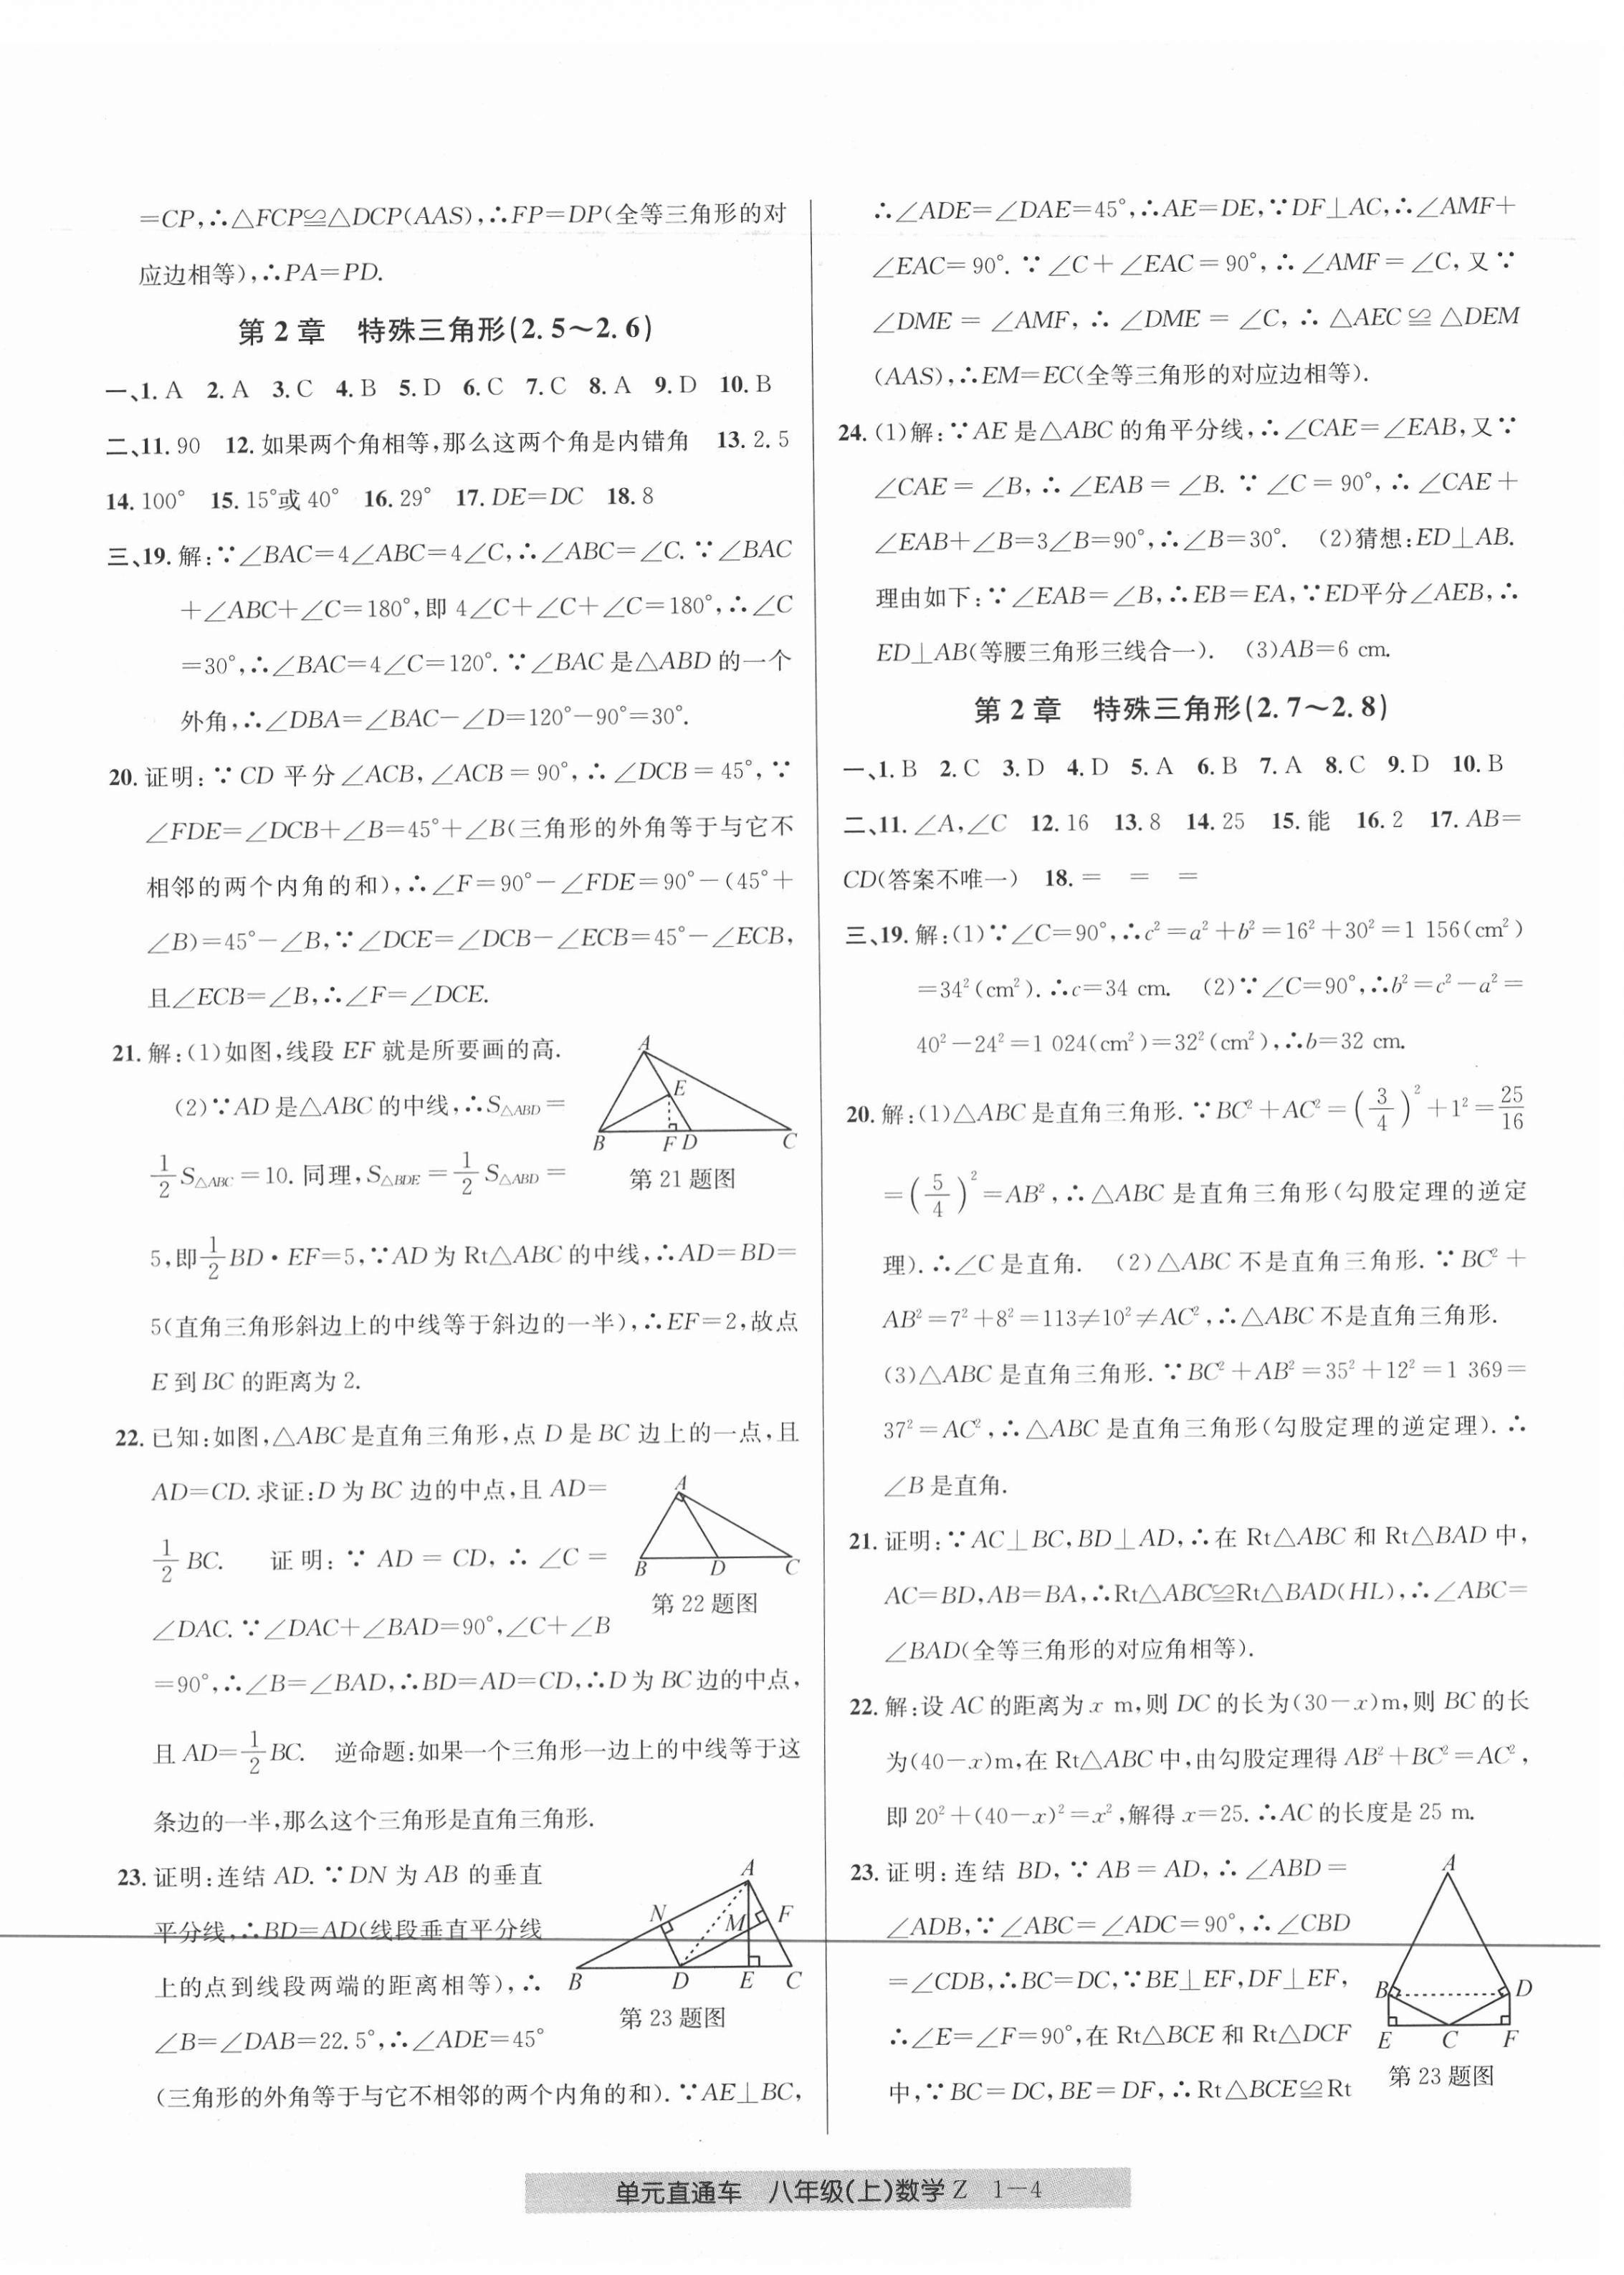 =CP,∴△FCP≌△DCP(AAS),∴FP=DP(全等三角形的对
应边相等),∴PA=PD.
第2章 特殊三角形(2.5～2.6)
一、1. A 2. A 3. C 4. B 5. D 6. C 7. C 8. A 9. D 10. B
二、11. 90 12. 如果两个角相等,那么这两个角是内错角 13. 2.5
14. 100° 15. 15°或 40° 16. 29° 17. DE=DC 18. 8
三、19. 解:∵∠BAC=4∠ABC=4∠C,∴∠ABC=∠C.∵∠BAC
+∠ABC+∠C=180°,即 4∠C+∠C+∠C=180°,∴∠C
=30°,∴∠BAC=4∠C=120°.∵∠BAC 是△ABD 的一个
外角,∴∠DBA=∠BAC-∠D=120°-90°=30°.
20. 证明:∵CD 平分∠ACB,∠ACB=90°,∴∠DCB=45°,∵
∠FDE=∠DCB+∠B=45°+∠B(三角形的外角等于与它不
相邻的两个内角的和),∴∠F=90°-∠FDE=90°-(45°+
∠B)=45°-∠B,∵∠DCE=∠DCB-∠ECB=45°-∠ECB,
且∠ECB=∠B,∴∠F=∠DCE.
21. 解:(1)如图,线段 EF 就是所要画的高.
(2)∵AD 是△ABC 的中线,∴S△ABD=
1/2 S△ABC=10. 同理,S△BDE=1/2 S△ABD=
5,即1/2 BD·EF=5,∵AD 为 Rt△ABC 的中线,∴AD=BD=
5(直角三角形斜边上的中线等于斜边的一半),∴EF=2,故点
E 到 BC 的距离为 2.
A
E
B F D C
第 21 题图
22. 已知:如图,△ABC 是直角三角形,点 D 是 BC 边上的一点,且
AD=CD. 求证:D 为 BC 边的中点,且 AD=
1/2 BC. 证明:∵AD=CD,∴∠C=
∠DAC.∵∠DAC+∠BAD=90°,∠C+∠B
=90°,∴∠B=∠BAD,∴BD=AD=CD,∴D 为 BC 边的中点,
且 AD=1/2 BC. 逆命题:如果一个三角形一边上的中线等于这
条边的一半,那么这个三角形是直角三角形.
A
B D C
第 22 题图
23. 证明:连结 AD.∵DN 为 AB 的垂直
平分线,∴BD=AD(线段垂直平分线
上的点到线段两端的距离相等),∴
∠B=∠DAB=22.5°,∴∠ADE=45°
(三角形的外角等于与它不相邻的两个内角的和).∵AE⊥BC,
A
N M F
B D E C
第 23 题图
∴∠ADE=∠DAE=45°,∴AE=DE,∵DF⊥AC,∴∠AMF+
∠EAC=90°.∵∠C+∠EAC=90°,∴∠AMF=∠C,又∵
∠DME=∠AMF,∴∠DME=∠C,∴△AEC≌△DEM
(AAS),∴EM=EC(全等三角形的对应边相等).
24. (1)解:∵AE 是△ABC 的角平分线,∴∠CAE=∠EAB,又∵
∠CAE=∠B,∴∠EAB=∠B.∵∠C=90°,∴∠CAE+
∠EAB+∠B=3∠B=90°,∴∠B=30°. (2)猜想:ED⊥AB.
理由如下:∵∠EAB=∠B,∴EB=EA,∵ED平分∠AEB,∴
ED⊥AB(等腰三角形三线合一). (3)AB=6 cm.
第2章 特殊三角形(2.7～2.8)
一、1. B 2. C 3. D 4. D 5. A 6. B 7. A 8. C 9. D 10. B
二、11. ∠A,∠C 12. 16 13. 8 14. 25 15. 能 16. 2 17. AB=
CD(答案不唯一) 18. = = =
三、19. 解:(1)∵∠C=90°,∴c²=a²+b²=16²+30²=1 156(cm²)
=34²(cm²).∴c=34 cm. (2)∵∠C=90°,∴b²=c²-a²=
40²-24²=1 024(cm²)=32²(cm²),∴b=32 cm.
20. 解:(1)△ABC 是直角三角形.∵BC²+AC²=(3/4)²+1²=25/16
=(5/4)²=AB²,∴△ABC 是直角三角形(勾股定理的逆定
理).∴∠C 是直角. (2)△ABC 不是直角三角形.∵BC²+
AB²=7²+8²=113≠10²≠AC²,∴△ABC 不是直角三角形.
(3)△ABC 是直角三角形.∵BC²+AB²=35²+12²=1 369=
37²=AC²,∴△ABC 是直角三角形(勾股定理的逆定理).∴
∠B 是直角.
21. 证明:∵AC⊥BC,BD⊥AD,∴在 Rt△ABC 和 Rt△BAD 中,
AC=BD,AB=BA,∴Rt△ABC≌Rt△BAD(HL),∴∠ABC=
∠BAD(全等三角形的对应角相等).
22. 解:设 AC 的距离为 x m,则 DC 的长为(30-x)m,则 BC 的长
为(40-x)m,在 Rt△ABC 中,由勾股定理得 AB²+BC²=AC²,
即 20²+(40-x)²=x²,解得 x=25.∴AC 的长度是 25 m.
23. 证明:连结 BD,∵AB=AD,∴∠ABD=
∠ADB,∵∠ABC=∠ADC=90°,∴∠CBD
=∠CDB,∴BC=DC,∵BE⊥EF,DF⊥EF,
∴∠E=∠F=90°,在 Rt△BCE 和 Rt△DCF
中,∵BC=DC,BE=DF,∴Rt△BCE≌Rt
A
B D
E C F
第 23 题图
单元直通车 八年级(上)数学 Z 1-4